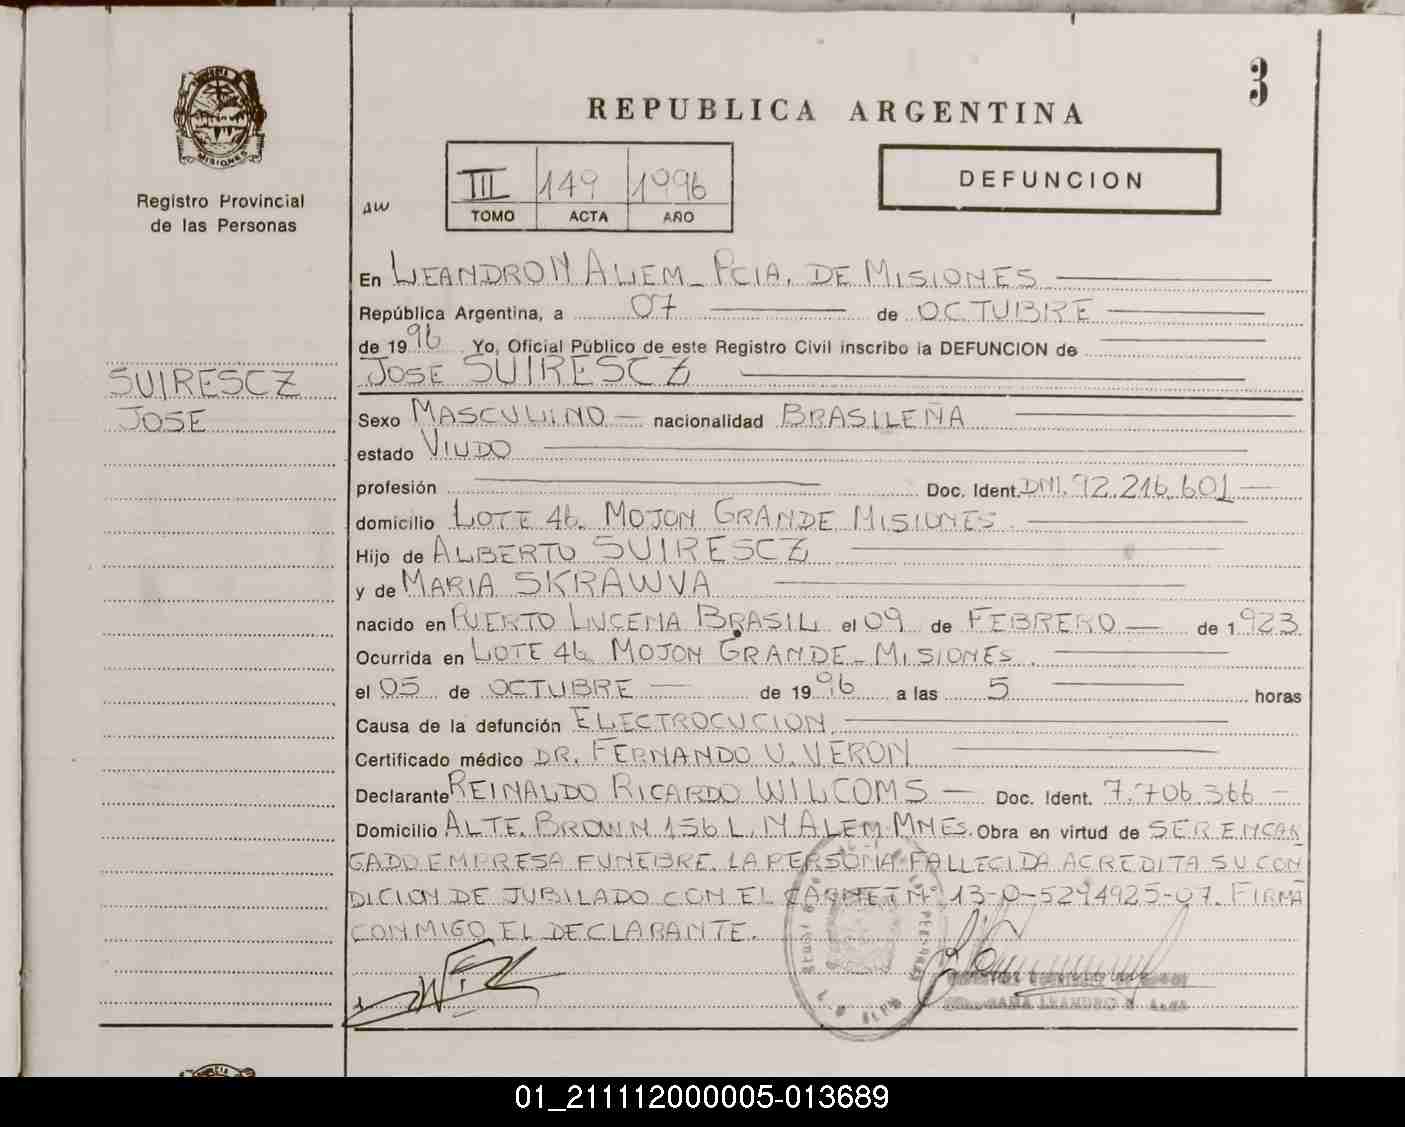 3
REPUBLICA ARGENTINA
MISIONES
Registro Provincial
de las Personas
AW
III 149 1996
TOMO ACTA AÑO
DEFUNCION
En LEANDRO N ALEM_ PCIA. DE MISIONES
República Argentina, a 07 de OCTUBRE
de 1996 Yo, Oficial Público de este Registro Civil inscribo la DEFUNCION de
JOSE SUIRESCZ
SUIRESCZ
JOSE
Sexo MASCULINO nacionalidad BRASILEÑA
estado VIUDO
profesión Doc. Ident. DNI. 92.216.601
domicilio LOTE 46. MOJON GRANDE MISIONES.
Hijo de ALBERTO SUIRESCZ
y de MARIA SKRAWVA
nacido en PUERTO LUCENA BRASIL el 09 de FEBRERO de 1923
Ocurrida en LOTE 46 MOJON GRANDE_ MISIONES.
el 05 de OCTUBRE de 1996 a las 5 horas
Causa de la defunción ELECTROCUCION
Certificado médico DR. FERNANDO U. VERON
Declarante REINALDO RICARDO WILCOMS Doc. Ident. 7.706.366
Domicilio ALTE. BROWN 156 L. N ALEM-MNES. Obra en virtud de SER ENCAR
GADO EMPRESA FUNEBRE. LA PERSONA FALLECIDA ACREDITA SU CON
DICION DE JUBILADO CON EL CARNET Nº 13-0-5294925-07. FIRMA
CONMIGO EL DECLARANTE.
01_211112000005-013689